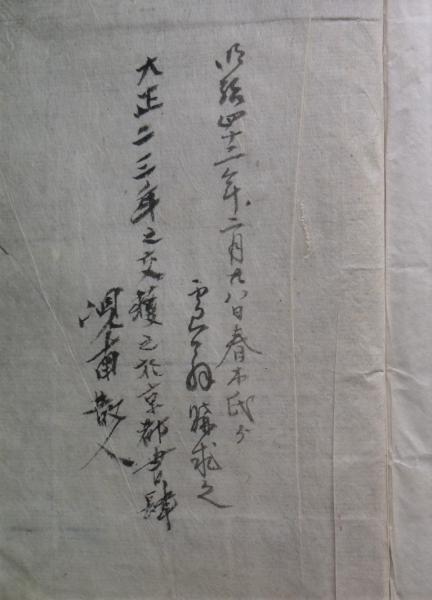 明治四十二年二月廿八日春木氏ゟ
購求之
大正二三年之交獲之於京都書肆
散人